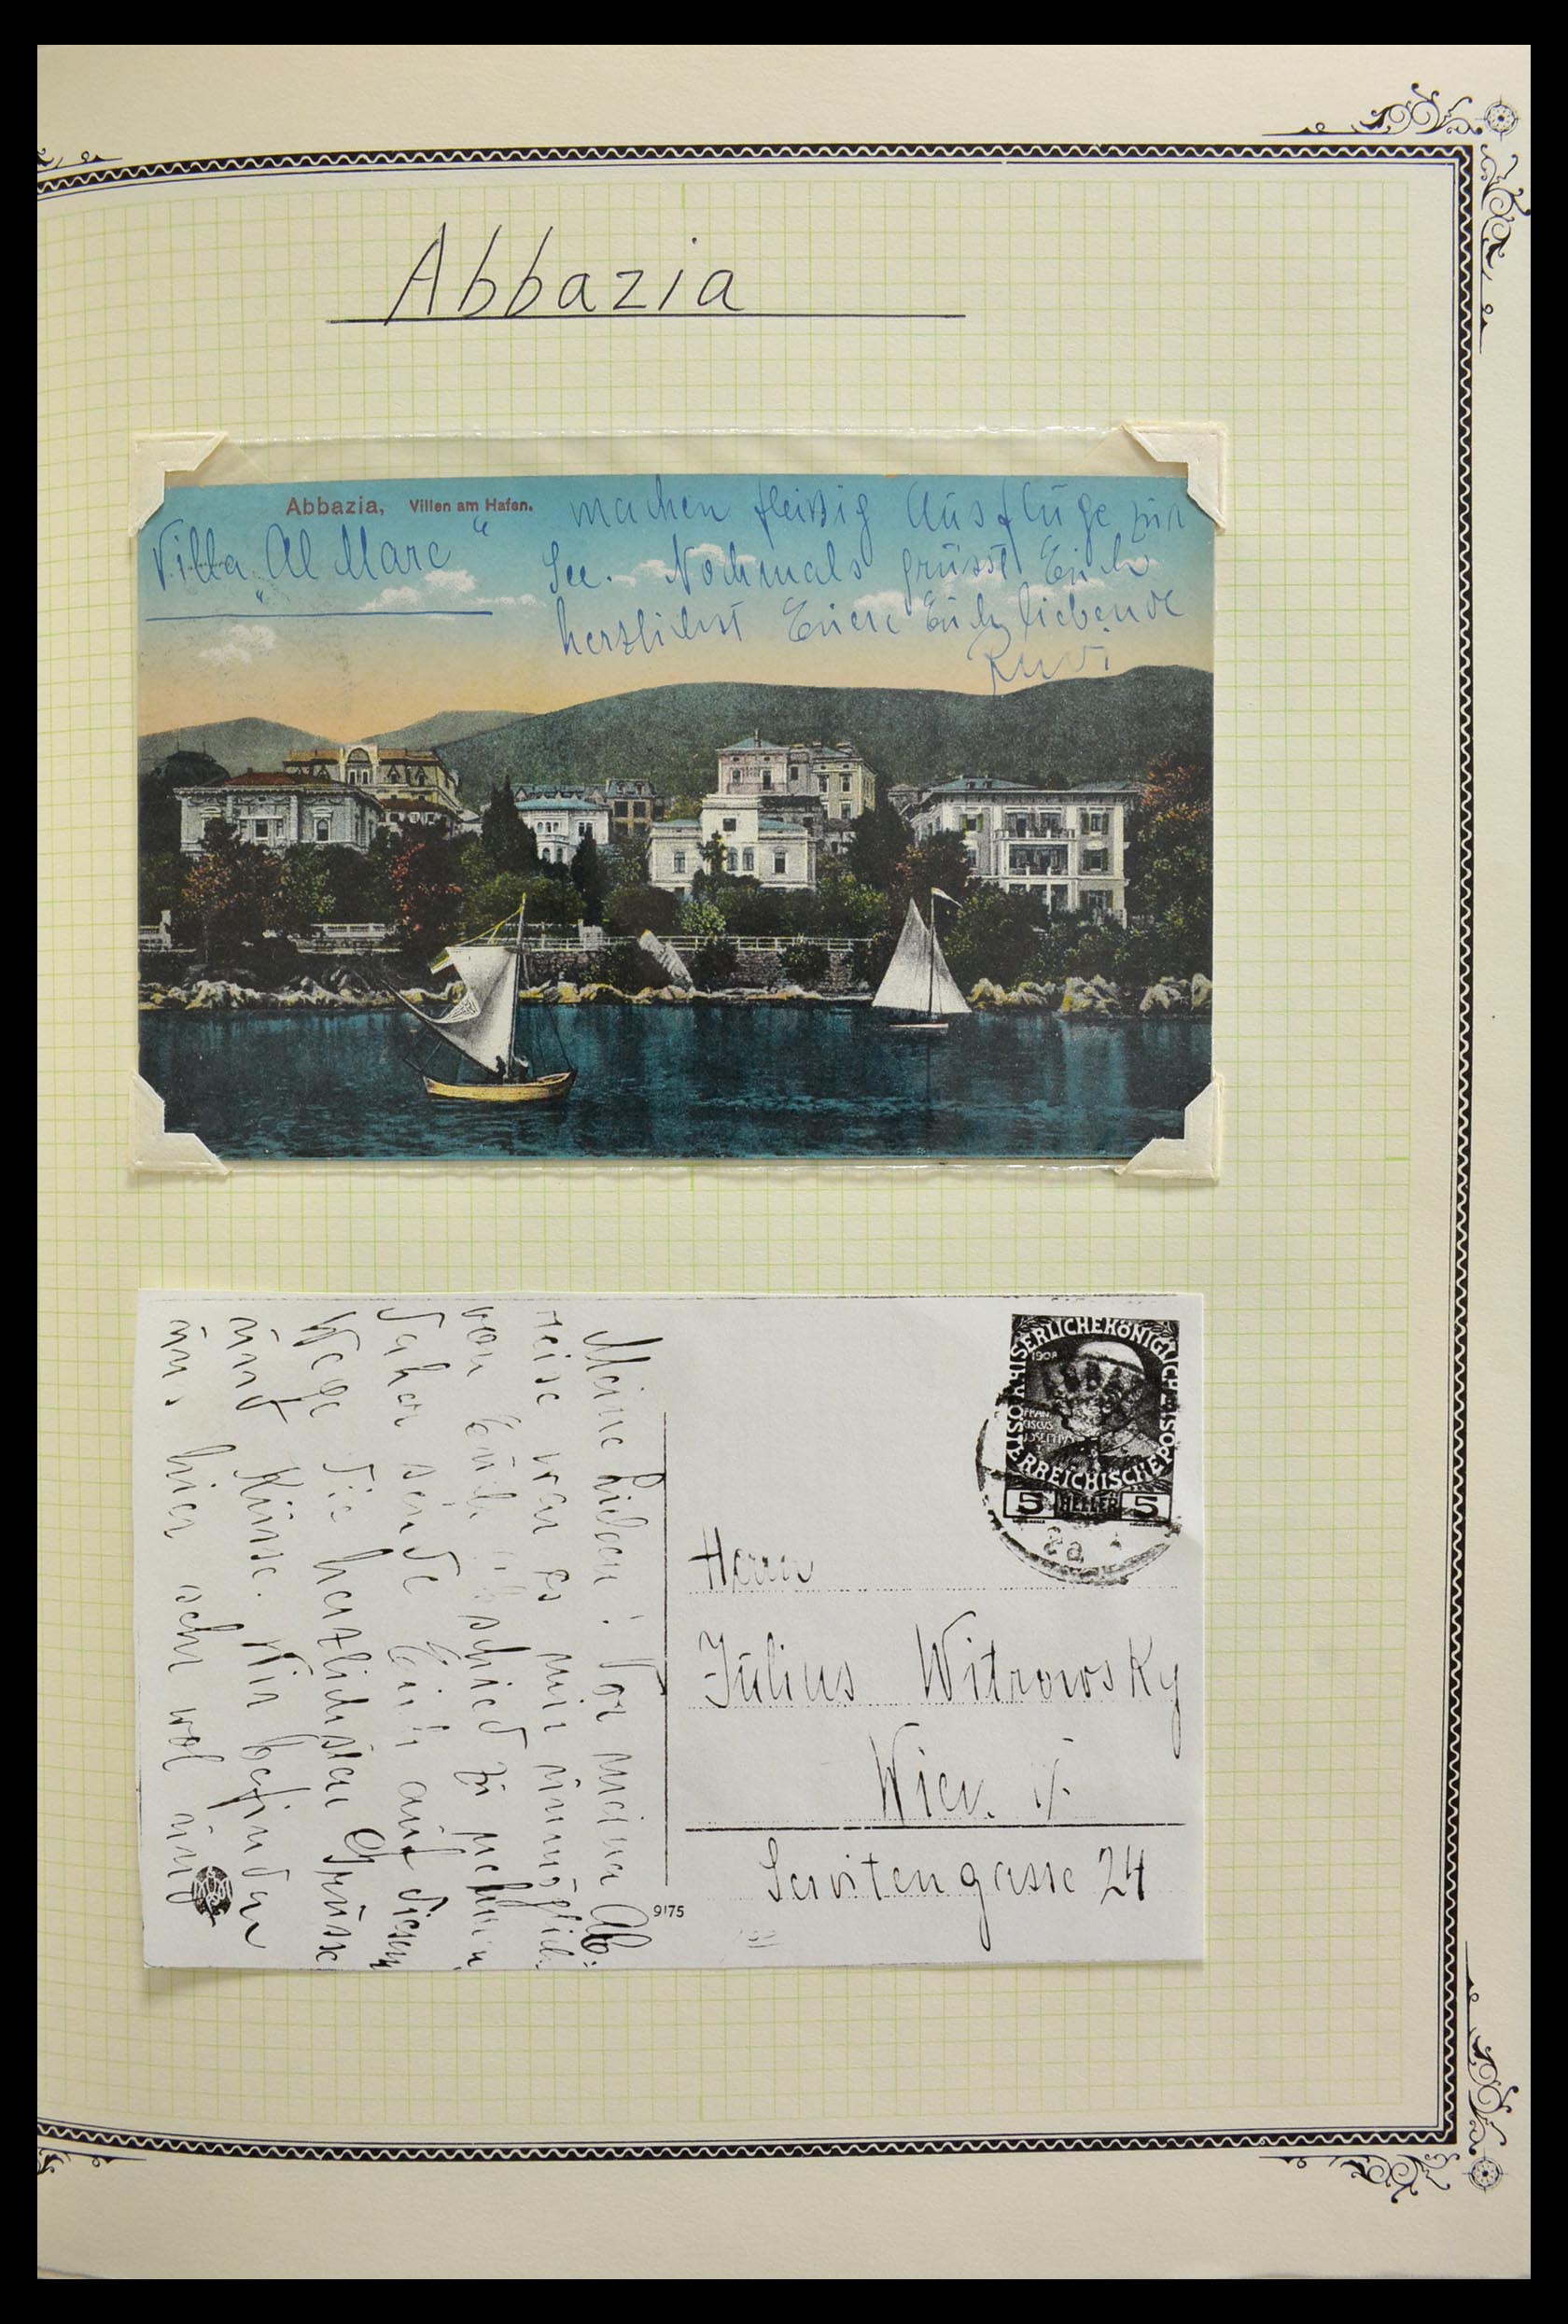 Abbazia
Abbazia, Villen am Hafen.
Villa „Al Mare“
machen fleißig Ausflüge zur
See. Nochmals grüsst Euch
herzlichst Euere Euch liebende
Meine Lieben! Vor meiner Ab-
reise war es mir unmöglich
von Euch Abschied zu nehmen
daher sende Euch auf diesem
Wege die herzlichsten Grüsse
und Küsse. Wir befinden
uns hier sehr wol und
9175
KAISERLICHE KÖNIGLICHE ÖSTERREICHISCHE POST
1908
FRAN
CISCUS
JOSEPHUS
I
5 HELLER 5
Herrn
Julius Witrowsky
Wien.
Servitengasse 24